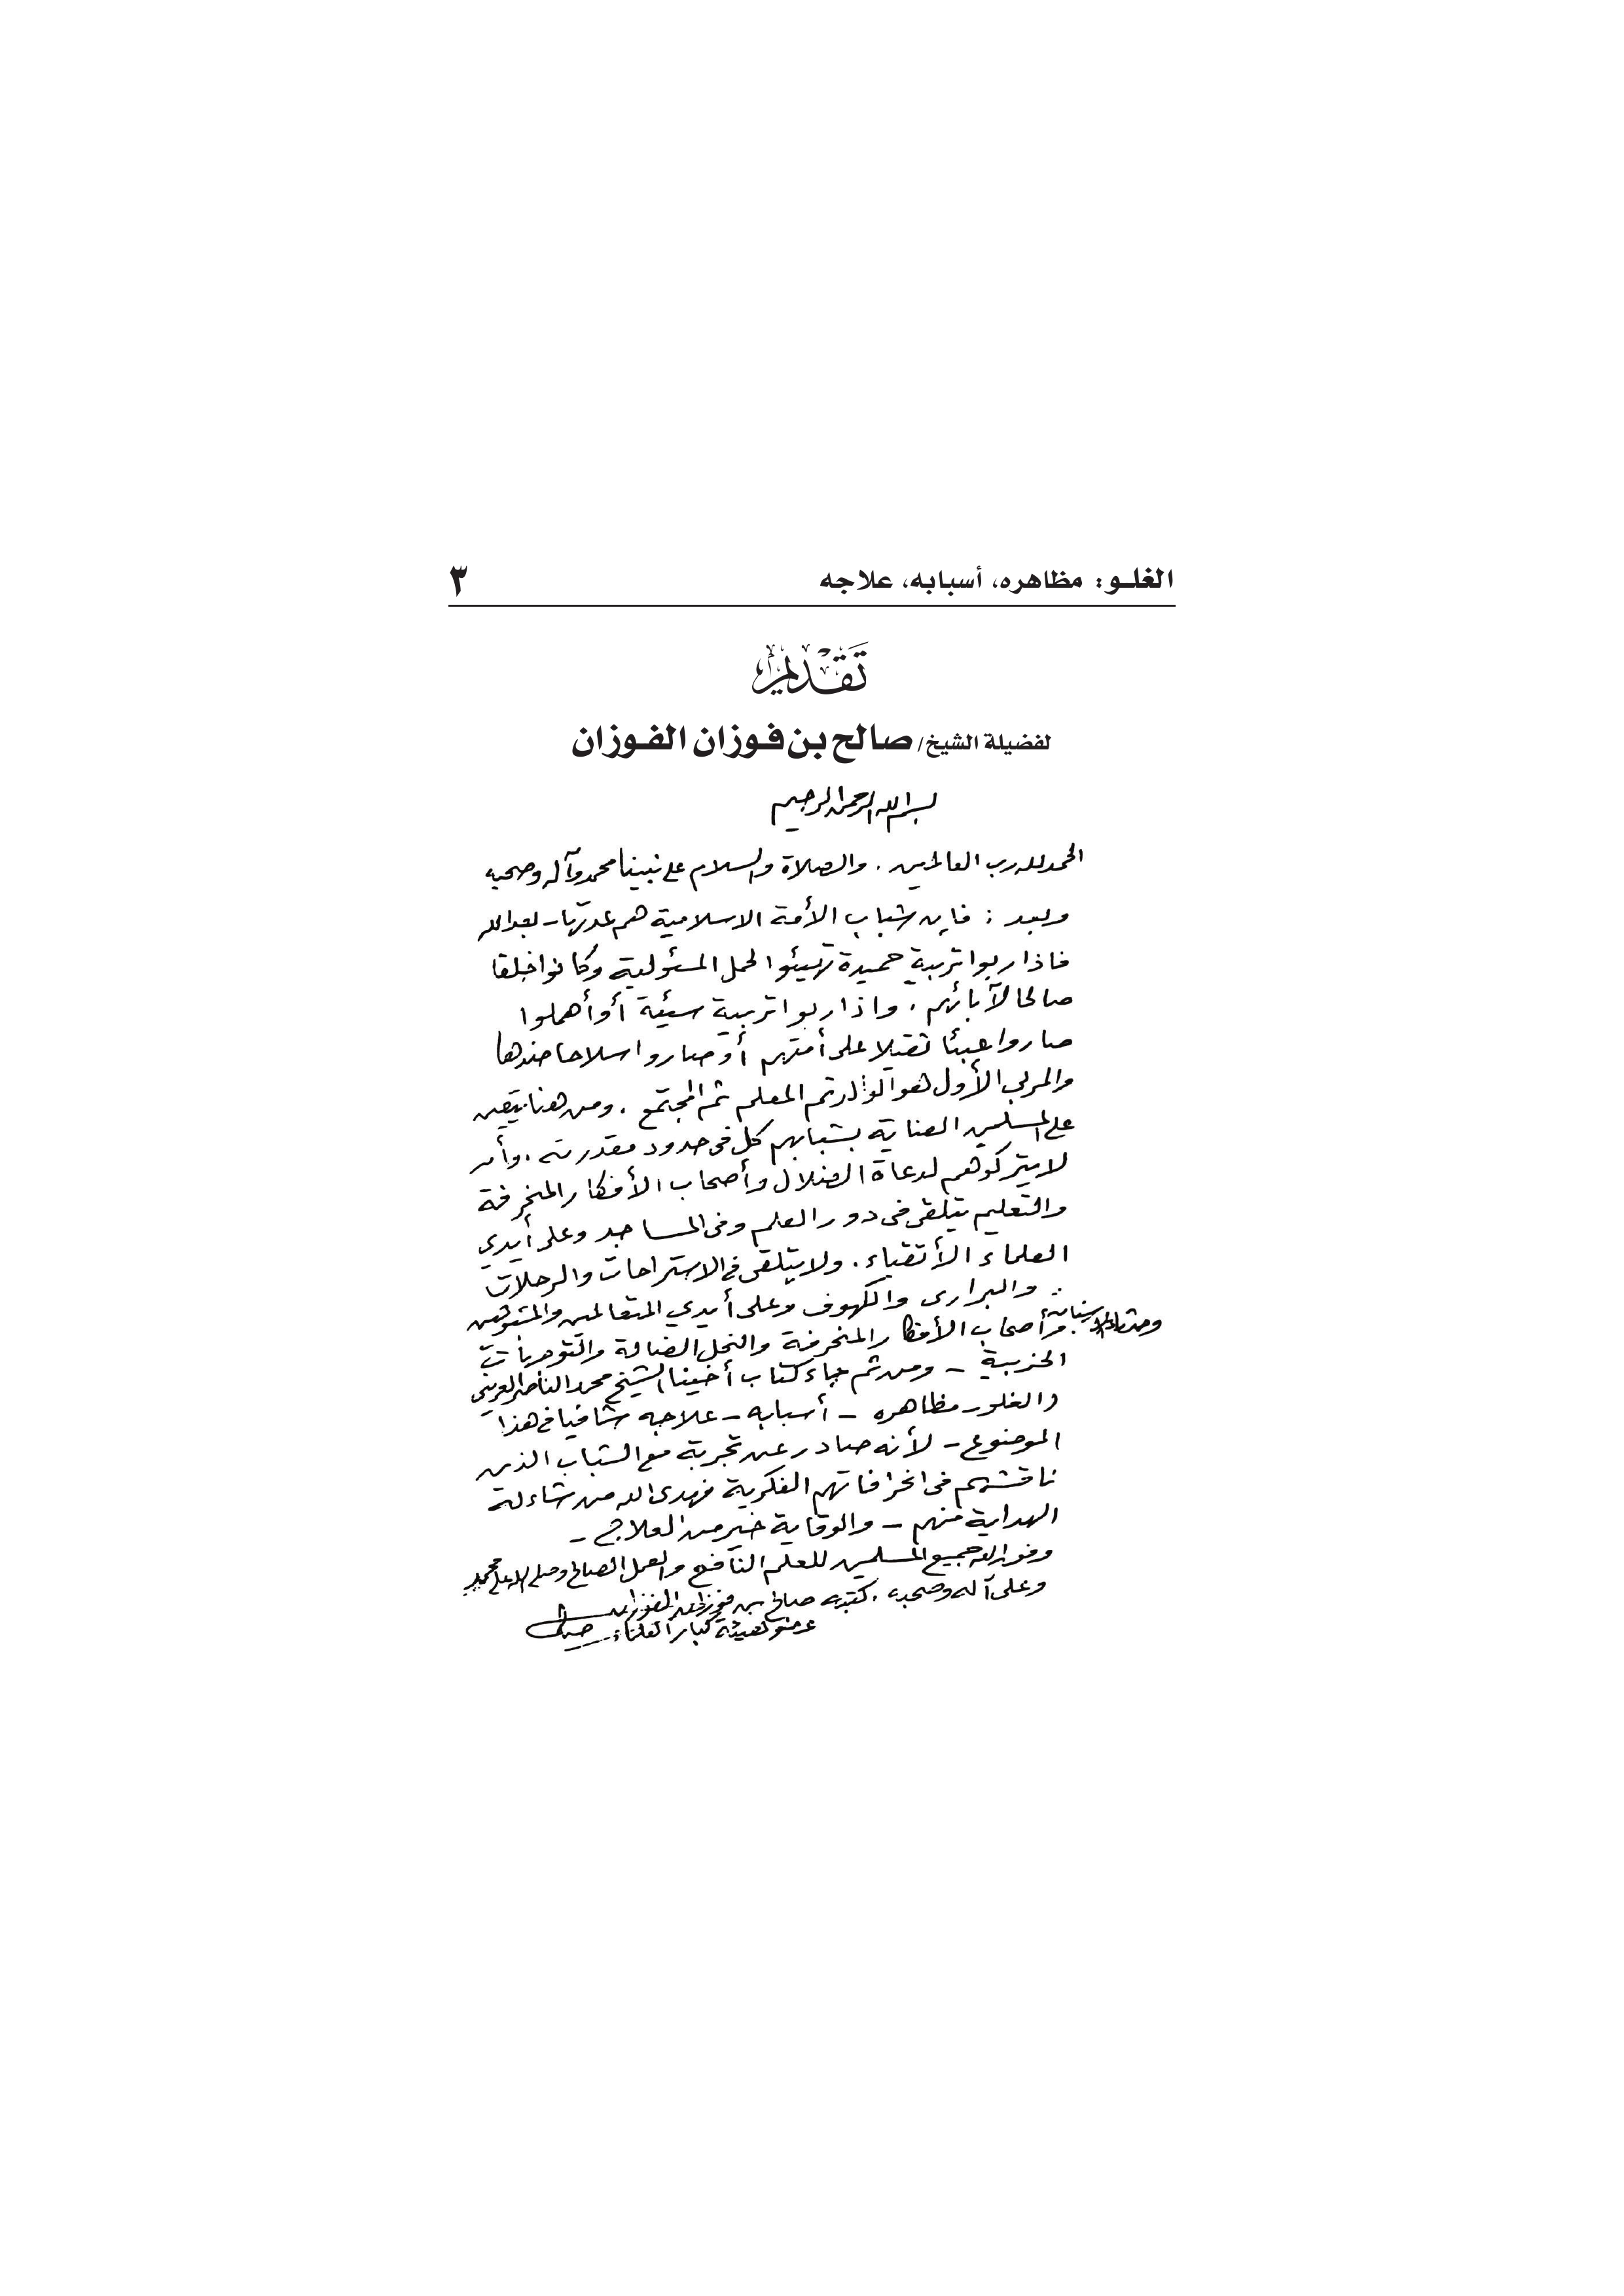 الغلـو: مظاهره، أسبابه، علاجه ٣
تَقْدِيم
لفضيلة الشيخ/ صالح بن فوزان الفوزان
بسم الله الرحمن الرحيم
الحمد لله رب العالمين. والصلاة والسلام على نبينا محمد وآله وصحبه
وبعد: فإن شباب الأمة الاسلامية هم عدتها - بعد الله
فاذا ربوا تربية حميدة تهيئوا لحمل المسئولية وكانوا خلفا
صالحا لآبائهم. واذا ربوا تربية سيئة أو أهملوا
صاروا عبئا ثقيلا على أمتهم أو صاروا سلاحا ضدها
والمربي الأول هو الوالد ثم المعلم ثم المجتمع. ومن هنا يتعين
على المسلمين العناية بشبابهم كل في حدود مقدرته. وأن
لا يتركوهم لدعاة الضلال وأصحاب الأفكار المنحرفة
والتعليم يتلقى في دور العلم وفي المساجد وعلى أيدي
العلماء الأتقياء. ولا يتلقى في الاستراحات والرحلات
والبراري والكهوف وعلى أيدي المتعالمين والمشبوهين
وحدثاء الاسنان من أصحاب الأفكار المنحرفة والنحل الضالة والتوجهات
الحزبية - ومن ثم جاء كتاب أخينا الشيخ محمد الناصر العريني
(الغلو - مظاهره - أسبابه - علاجه شافيا في هذا
الموضوع - لأنه صادر عن تجربة مع الشباب الذين
ناقشهم في انحرافاتهم الفكرية فهدى الله من شاء له
الهداية منهم - والوقاية خير من العلاج -
وفق الله جميع المسلمين للعلم النافع والعمل الصالح وصلى الله على محمد
وعلى آله وصحبه. كتبه صالح بن فوزان الفوزان
عضو هيئة كبار العلماء